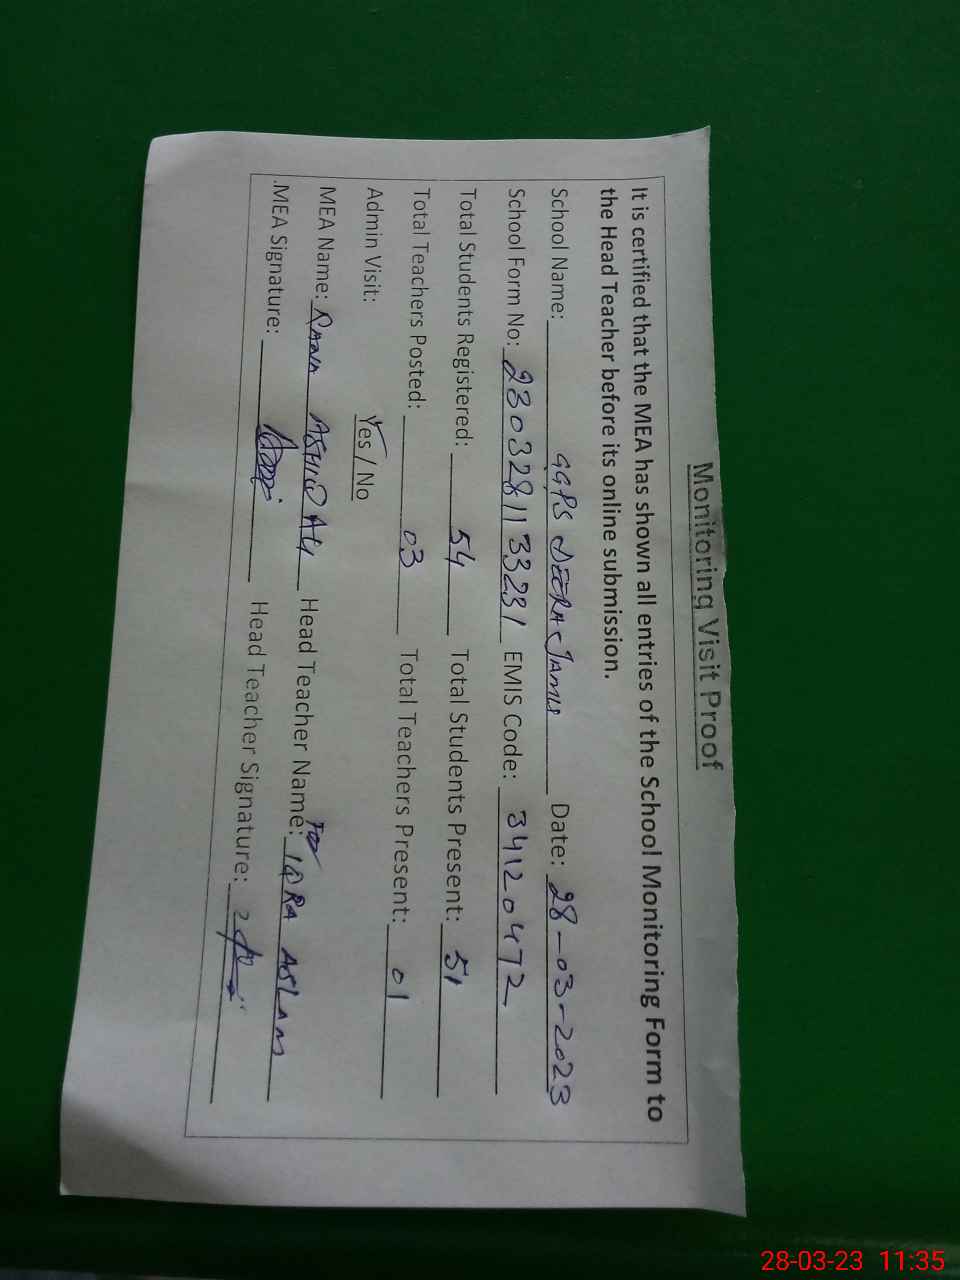 Monitoring Visit Proof
It is certified that the MEA has shown all entries of the School Monitoring Form to
the Head Teacher before its online submission.
School Name: GGPS DEERA JAMIL Date: 28-03-2023
School Form No: 230328113231 EMIS Code: 34120472
Total Students Registered: 54 Total Students Present: 51
Total Teachers Posted: 03 Total Teachers Present: 01
Admin Visit: Yes / No
MEA Name: RANA ALI Head Teacher Name: IQRA ASLAM
MEA Signature: Head Teacher Signature:
28-03-23 11:35